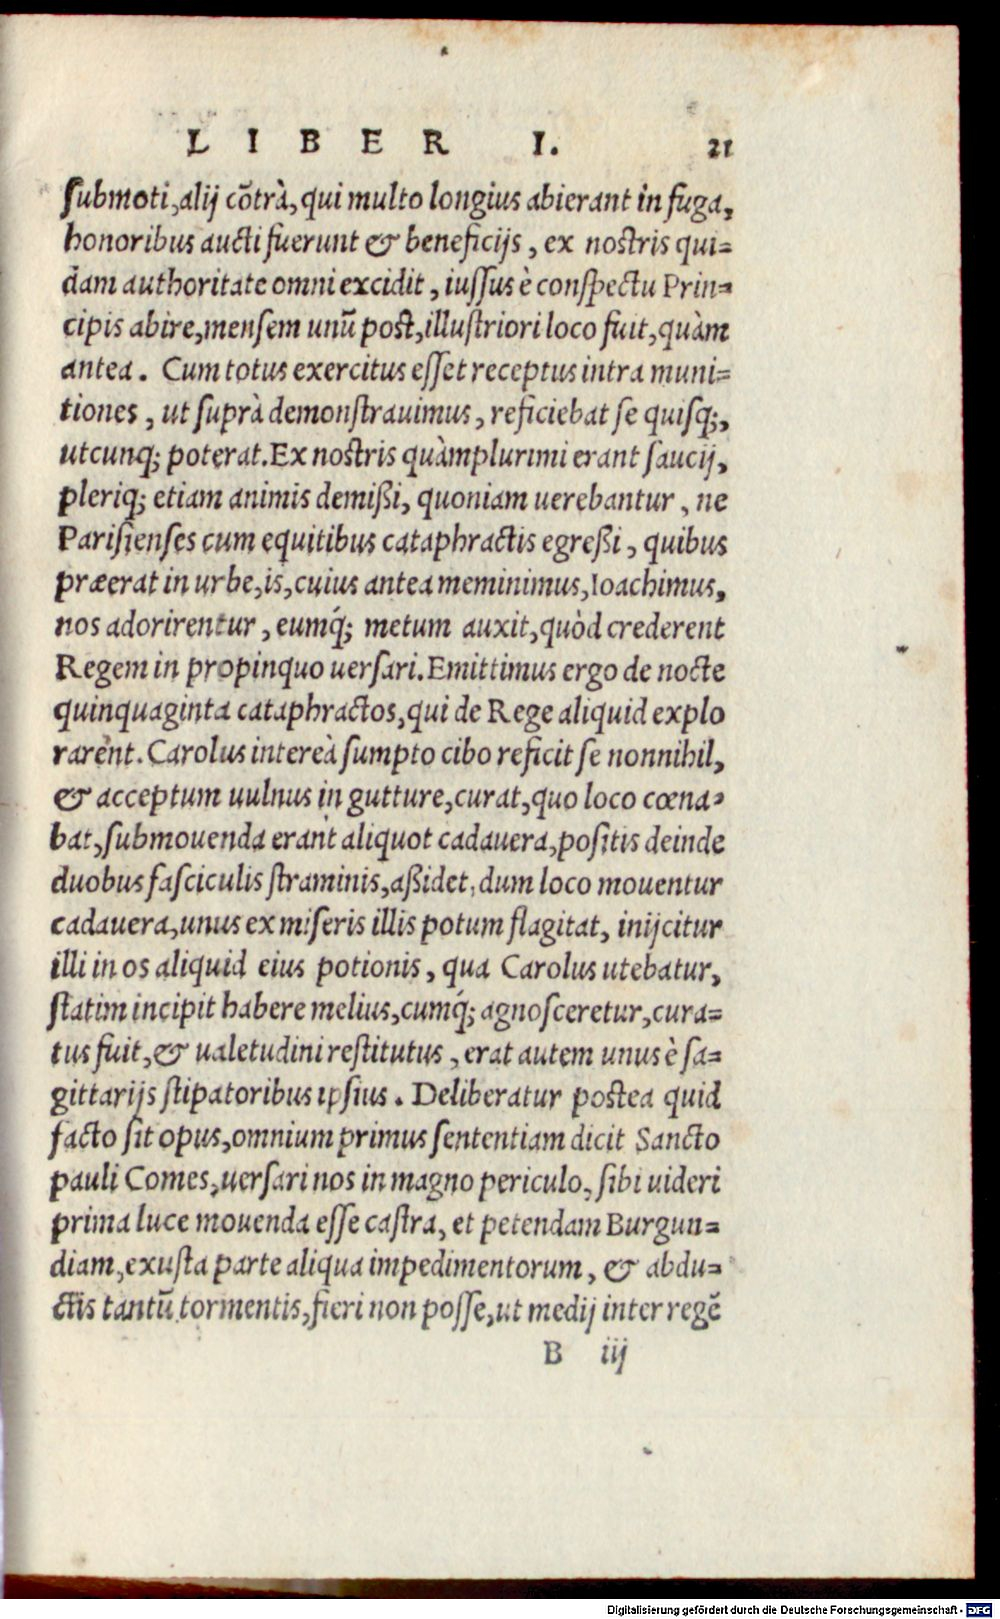 LIBER I. 21
submoti, alij cōtrà, qui multo longius abierant in fuga,
honoribus aucti fuerunt & beneficijs, ex nostris qui-
dam authoritate omni excidit, iussus è conspectu Prin-
cipis abire, mensem unū post, illustriori loco fuit, quàm
antea. Cum totus exercitus esset receptus intra muni-
tiones, ut suprà demonstrauimus, reficiebat se quisq;,
utcunq; poterat. Ex nostris quàmplurimi erant saucij,
pleriq; etiam animis demißi, quoniam uerebantur, ne
Parisienses cum equitibus cataphractis egreßi, quibus
præerat in urbe, is, cuius antea meminimus, Ioachimus,
nos adorirentur, eumq́; metum auxit, quòd crederent
Regem in propinquo uersari. Emittimus ergo de nocte
quinquaginta cataphractos, qui de Rege aliquid explo
rarent. Carolus intereà sumpto cibo reficit se nonnihil,
& acceptum uulnus in gutture, curat, quo loco cœna-
bat, submouenda erant aliquot cadauera, positis deinde
duobus fasciculis straminis, aßidet, dum loco mouentur
cadauera, unus ex miseris illis potum flagitat, inijcitur
illi in os aliquid eius potionis, qua Carolus utebatur,
statim incipit habere melius, cumq́; agnosceretur, cura-
tus fuit, & ualetudini restitutus, erat autem unus è sa-
gittarijs stipatoribus ipsius. Deliberatur postea quid
facto sit opus, omnium primus sententiam dicit Sancto
pauli Comes, uersari nos in magno periculo, sibi uideri
prima luce mouenda esse castra, et petendam Burgun-
diam, exusta parte aliqua impedimentorum, & abdu-
ctis tantū tormentis, fieri non posse, ut medij inter regē
B iij
Digitalisierung gefördert durch die Deutsche Forschungsgemeinschaft - DFG